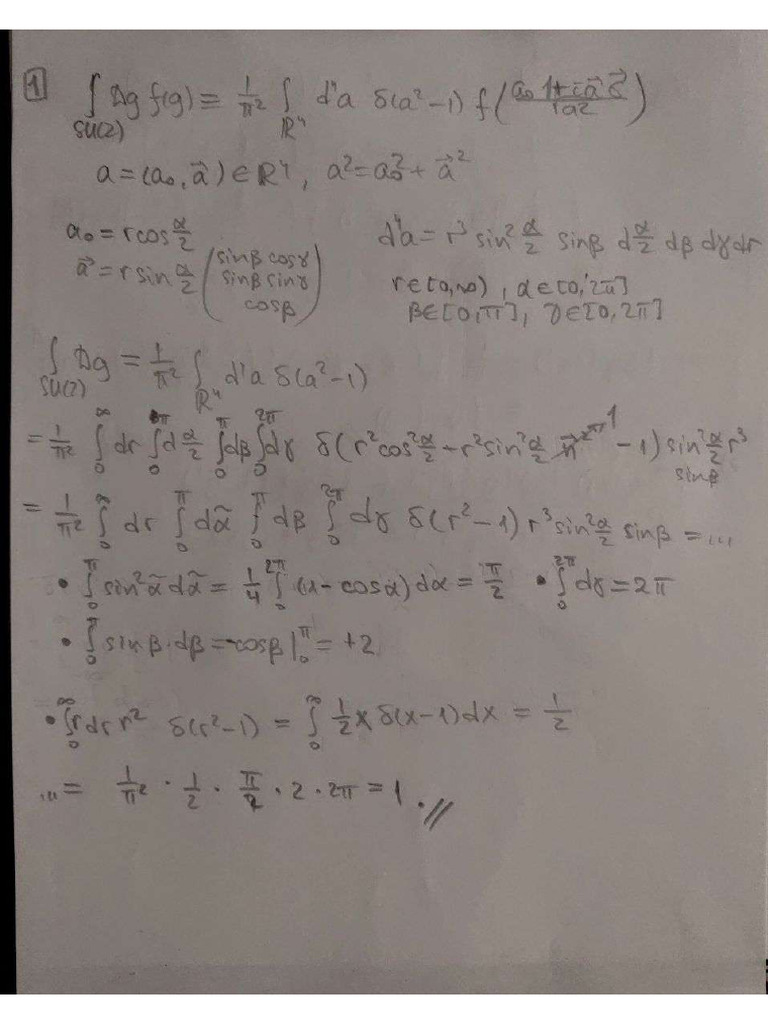 1 ∫_{SU(2)} Dg f(g) = 1/π² ∫_{ℝ⁴} d⁴a δ(a²-1) f( (a₀ 1 + i a⃗ σ⃗) / |a|² )
a = (a₀, a⃗) ∈ ℝ⁴, a² = a₀² + a⃗²
a₀ = r cos α/2 d⁴a = r³ sin² α/2 sinβ d α/2 dβ dγ dr
a⃗ = r sin α/2 (sinβ cosγ, sinβ sinγ, cosβ) r ∈ [0,∞), α ∈ [0, 2π]
β ∈ [0,π], γ ∈ [0,2π]
∫_{SU(2)} Dg = 1/π² ∫_{ℝ⁴} d⁴a δ(a²-1)
= 1/π² ∫₀^∞ dr ∫₀^π d α/2 ∫₀^π dβ ∫₀^{2π} dγ δ(r² cos² α/2 + r² sin² α/2 n⃗² ↗1 - 1) sin² α/2 r³ sinβ
= 1/π² ∫₀^∞ dr ∫₀^π dα̃ ∫₀^π dβ ∫₀^{2π} dγ δ(r²-1) r³ sin² α/2 sinβ = ...
• ∫₀^π sin² α̃ dα̃ = 1/4 ∫₀^{2π} (1 - cosα) dα = π/2 • ∫₀^{2π} dγ = 2π
• ∫₀^π sinβ · dβ = -cosβ |₀^π = +2
• ∫₀^∞ r dr r² δ(r²-1) = ∫₀^∞ 1/2 x δ(x-1) dx = 1/2
... = 1/π² · 1/2 · π/2 · 2 · 2π = 1 . //